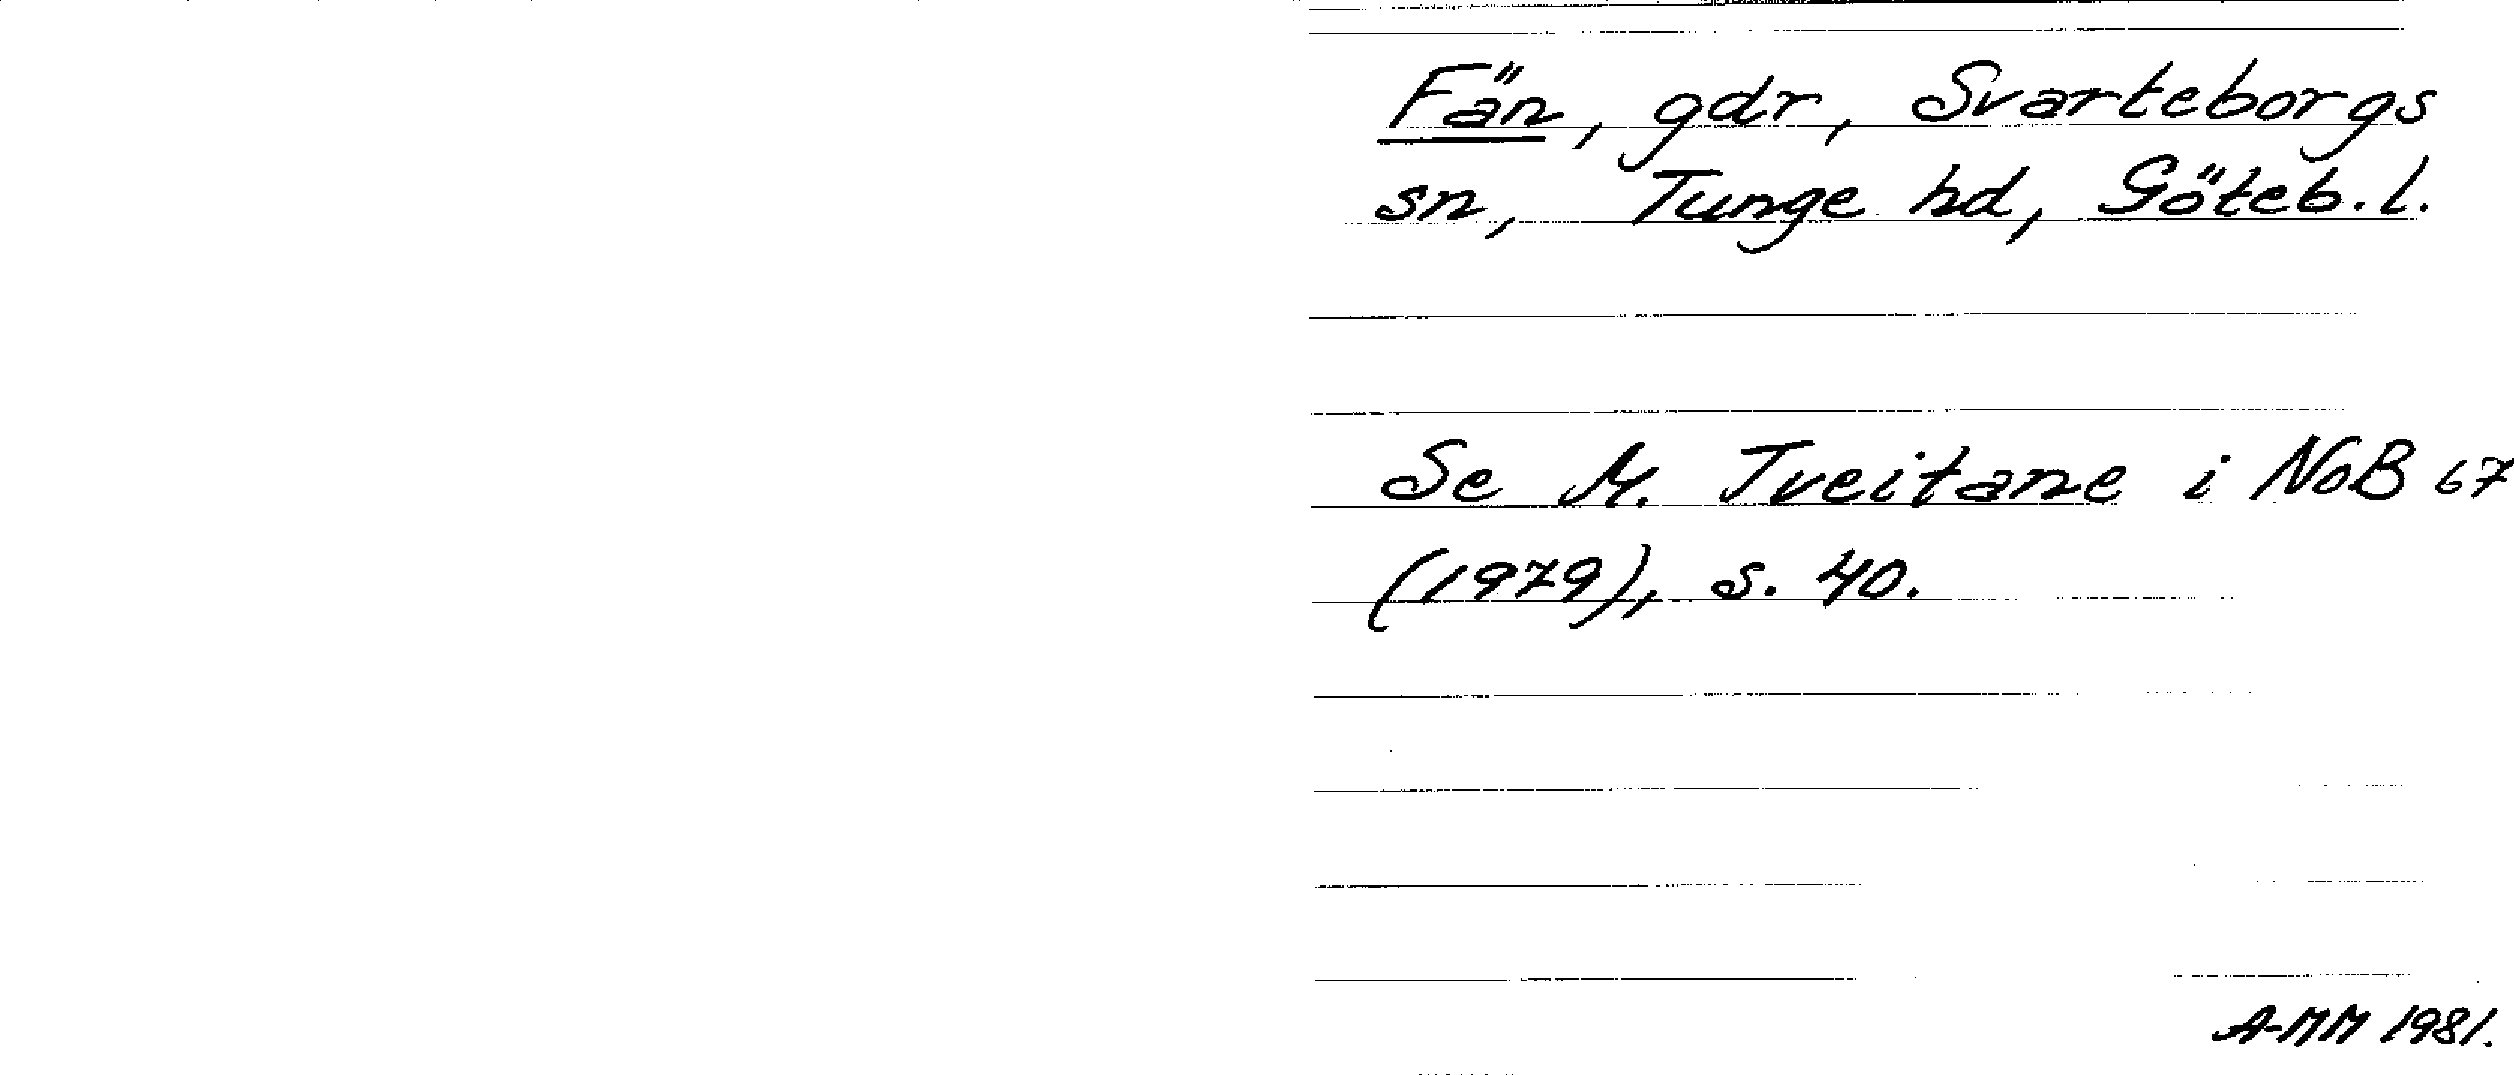 Fän, gdr, Svarteborgs
sn, Tunge hd, Göteb. l.
Se M. Tveitane i NoB 67
(1979), s. 40.
A-MM 1981.